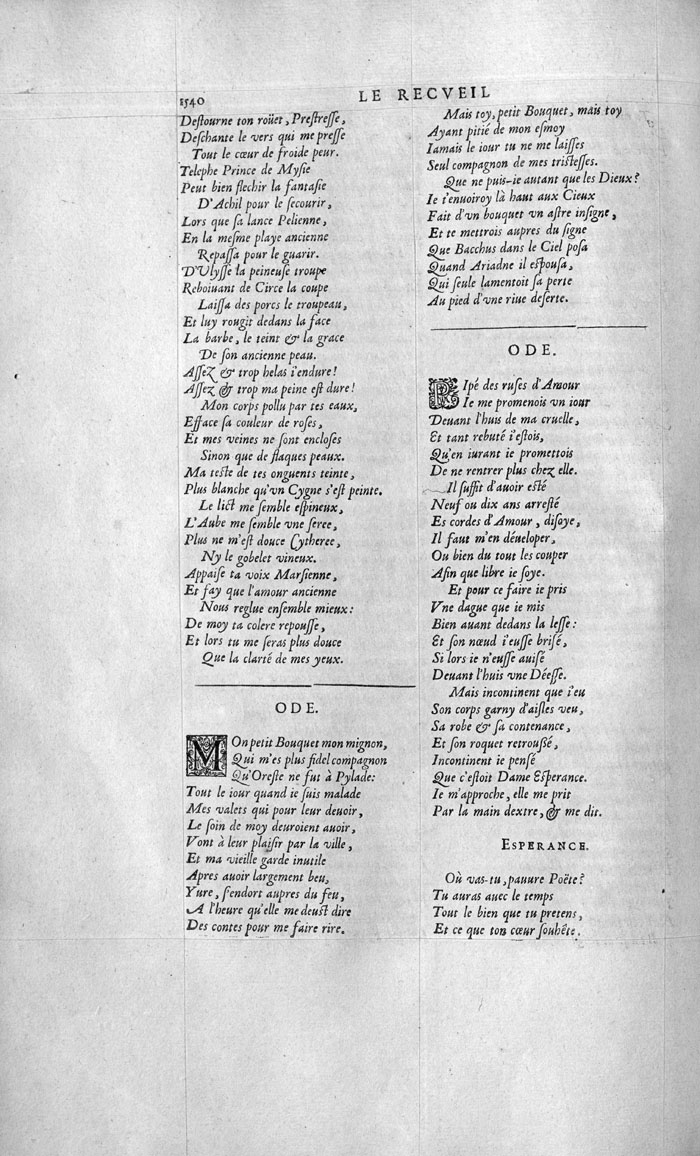 1540
LE RECVEIL
Destourne ton roüet, Prestresse,
Deschante le vers qui me presse
Tout le cœur de froide peur.
Telephe Prince de Mysie
Peut bien flechir la fantasie
D'Achil pour le secourir,
Lors que sa lance Pelienne,
En la mesme playe ancienne
Repassa pour le guarir.
D'Ulysse la peineuse troupe
Reboiuant de Circe la coupe
Laissa des porcs le troupeau,
Et luy rougit dedans la face
La barbe, le teint & la grace
De son ancienne peau.
Assez & trop helas i'endure!
Assez & trop ma peine est dure!
Mon corps pollu par tes eaux,
Efface sa couleur de roses,
Et mes veines ne sont encloses
Sinon que de flaques peaux.
Ma teste de tes onguents teinte,
Plus blanche qu'vn Cygne s'est peinte.
Le lict me semble espineux,
L'Aube me semble vne seree,
Plus ne m'est douce Cytheree,
Ny le gobelet vineux.
Appaise ta voix Marsienne,
Et fay que l'amour ancienne
Nous reglue ensemble mieux:
De moy ta colere repousse,
Et lors tu me seras plus douce
Que la clarté de mes yeux.
ODE.
MOn petit Bouquet mon mignon,
Qui m'es plus fidel compagnon
Qu'Oreste ne fut à Pylade:
Tout le iour quand ie suis malade
Mes valets qui pour leur deuoir,
Le soin de moy deuroient auoir,
Vont à leur plaisir par la ville,
Et ma vieille garde inutile
Apres auoir largement beu,
Yure, s'endort aupres du feu,
A l'heure qu'elle me deust dire
Des contes pour me faire rire.
Mais toy, petit Bouquet, mais toy
Ayant pitié de mon esmoy
Iamais le iour tu ne me laisses
Seul compagnon de mes tristesses.
Que ne puis-ie autant que les Dieux?
Ie t'enuoiroy là haut aux Cieux
Fait d'vn bouquet vn astre insigne,
Et te mettrois aupres du signe
Que Bacchus dans le Ciel posa
Quand Ariadne il espousa,
Qui seule lamentoit sa perte
Au pied d'vne riue deserte.
ODE.
PIpé des ruses d'Amour
Ie me promenois vn iour
Deuant l'huis de ma cruelle,
Et tant rebuté i'estois,
Qu'en iurant ie promettois
De ne rentrer plus chez elle.
Il suffit d'auoir esté
Neuf ou dix ans arresté
Es cordes d'Amour, disoye,
Il faut m'en déueloper,
Ou bien du tout les couper
Afin que libre ie soye.
Et pour ce faire ie pris
Vne dague que ie mis
Bien auant dedans la lesse:
Et son nœud i'eusse brisé,
Si lors ie n'eusse auisé
Deuant l'huis vne Déesse.
Mais incontinent que i'eu
Son corps garny d'aisles veu,
Sa robe & sa contenance,
Et son roquet retroussé,
Incontinent ie pensé
Que c'estoit Dame Esperance.
Ie m'approche, elle me prit
Par la main dextre, & me dit.
ESPERANCE.
Où vas-tu, pauure Poëte?
Tu auras auec le temps
Tout le bien que tu pretens,
Et ce que ton cœur souhête.